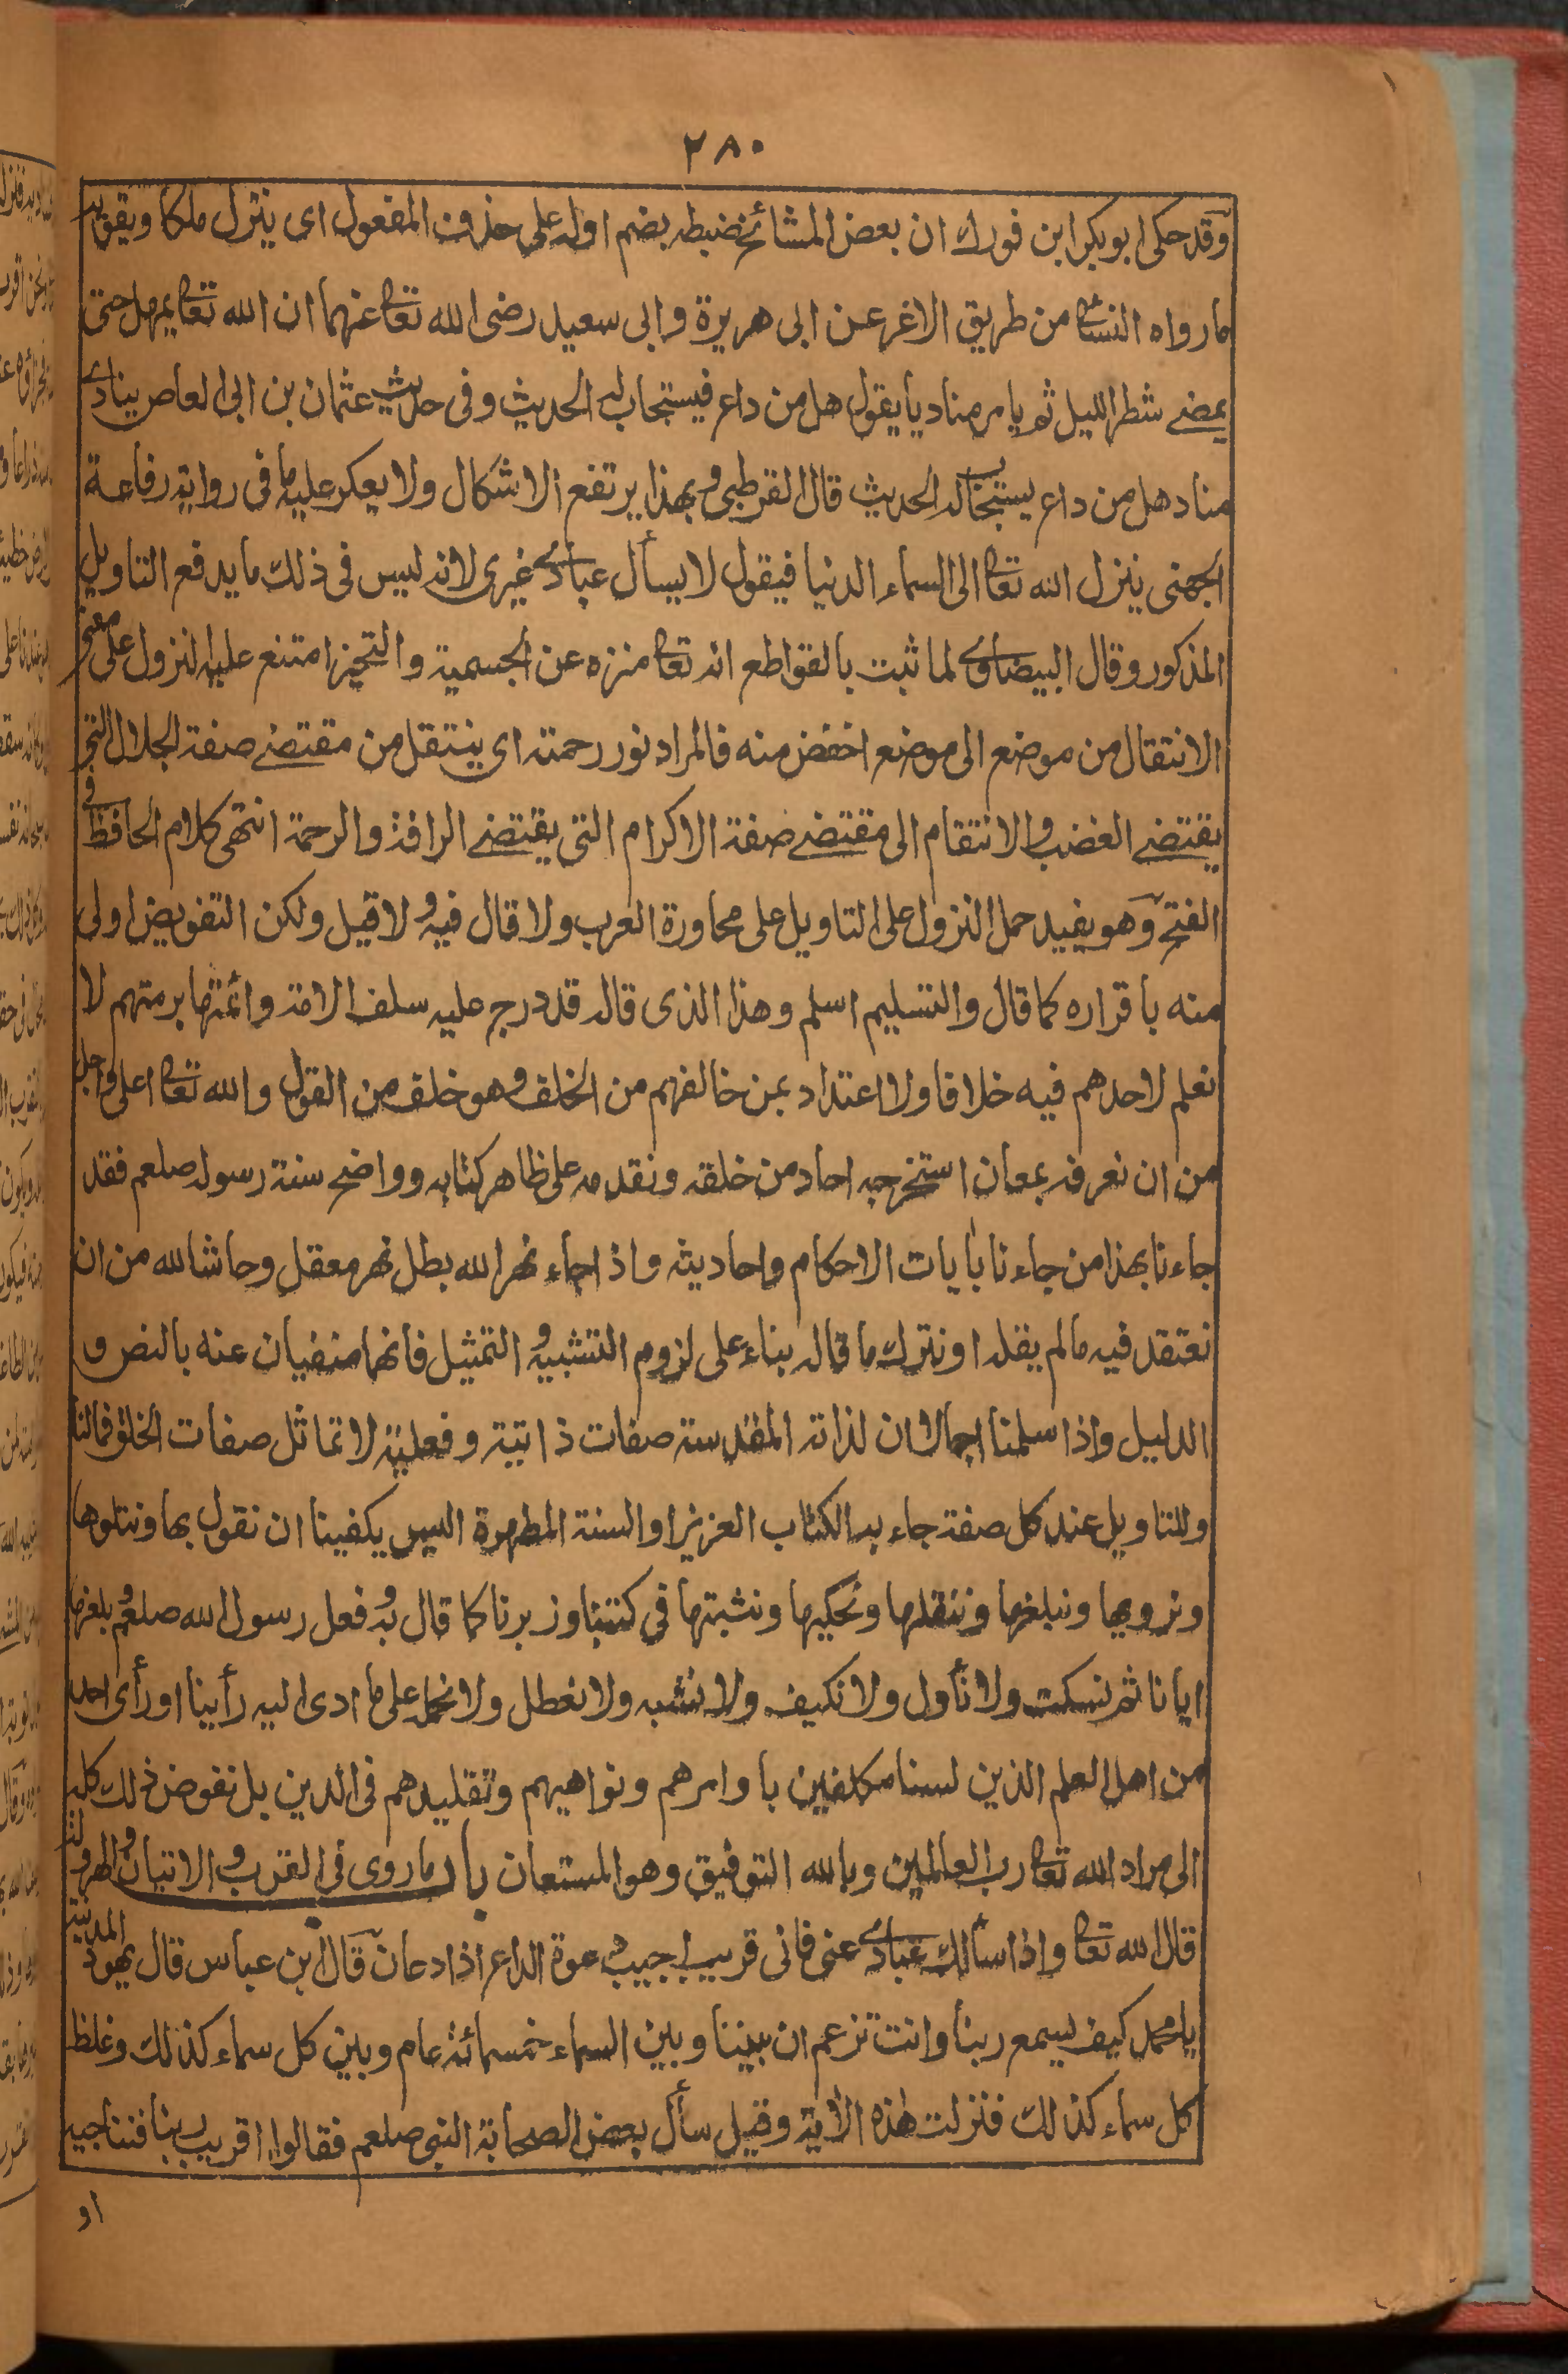 ٢٨٠
وقد حكى ابو بكر ابن فورك ان بعض المشائخ ضبطه بضم اوله على حذف المفعول اى ينزل ملكا ويقويه
ما رواه النسائ من طريق الاغر عن ابى هريرة وابى سعيد رضى الله تعا عنهما ان الله تعا يمهل حتى
يمضے شطر الليل ثم يامر مناديا يقول هل من داع فيستجاب له الحديث وفى حديث عثمان بن ابى العاص ينادى
مناد هل من داع يستجاب له الحديث قال القرطبى وبهذا يرتفع الاشكال ولا يعكر عليه ما فى رواية رفاعة
الجهنى ينزل الله تعا الى السماء الدنيا فيقول لا يسأل عبادى غيرى لانه ليس فى ذلك ما يدفع التاويل
المذكور وقال البيضاوى لما ثبت بالقواطع انه تعا منزه عن الجسمية والتحيز امتنع عليه النزول على معنى
الانتقال من موضع الى موضع اخفض منه فالمراد نور رحمته اى ينتقل من مقتضے صفة الجلال التى
يقتضے الغضب والانتقام الى مقتضے صفة الاكرام التى يقتضے الرافة والرحمة انتهى كلام الحافظ فى
الفتح وهو يفيد حمل النزول على التاويل على محاورة العرب ولا قال فيه ولا قيل ولكن التفويض اولى
منه باقراره كما قال والتسليم اسلم وهذا الذى قاله قد درج عليه سلف الامة وائمتها برمتهم لا
نعلم لاحدهم فيه خلافا ولا اعتداد بمن خالفهم من الخلف وهو خلف من القول والله تعا اعلى واجل
من ان نعرفه بمعان استخرجه احاد من خلقه ونقدمه على ظاهر كتابه وواضح سنة رسوله صلعم فقد
جاءنا بهذا من جاءنا بايات الاحكام واحاديثه واذا جاء نهر الله بطل نهر معقل وحاشا لله من ان
نعتقد فيه ما لم يقله او نترك ما قاله بناء على لزوم التشبيه والتمثيل فانهما منفيان عنه بالنص و
الدليل واذا سلمنا اجمالا ان لذاته المقدسة صفات ذاتية وفعلية لا تماثل صفات الخلق فما لنا
وللتاويل عند كل صفة جاء به الكتاب العزيز او السنة المطهرة اليس يكفينا ان نقول بها ونتلوها
ونرويها ونبلغها وننقلها ونحكيها ونثبتها فى كتبنا وزبرنا كما قال به وفعل رسول الله صلعم وبلغها
ايانا ثم نسكت ولا نأول ولا نكيف ولا نشبه ولا نعطل ولا نحمله على ما ادى اليه رأينا او رأى احد
من اهل العلم الذين لسنا مكلفين باوامرهم ونواهيهم وتقليدهم فى الدين بل نفوض ذلك كله
الى مراد الله تعا رب العالمين وبالله التوفيق وهو المستعان باب ما روى فى القرب والاتيان والهرولة
قال الله تعا واذا سألك عبادى عنى فانى قريب اجيب دعوة الداع اذا دعان قال ابن عباس قال يهود المدينة
يا محمد كيف يسمع ربنا وانت تزعم ان بيننا وبين السماء خمسمائة عام وبين كل سماء كذلك وغلظ
كل سماء كذلك فنزلت هذه الاية وقيل سأل بعض الصحابة النبى صلعم فقالوا اقريب ربنا فنناجيه
او